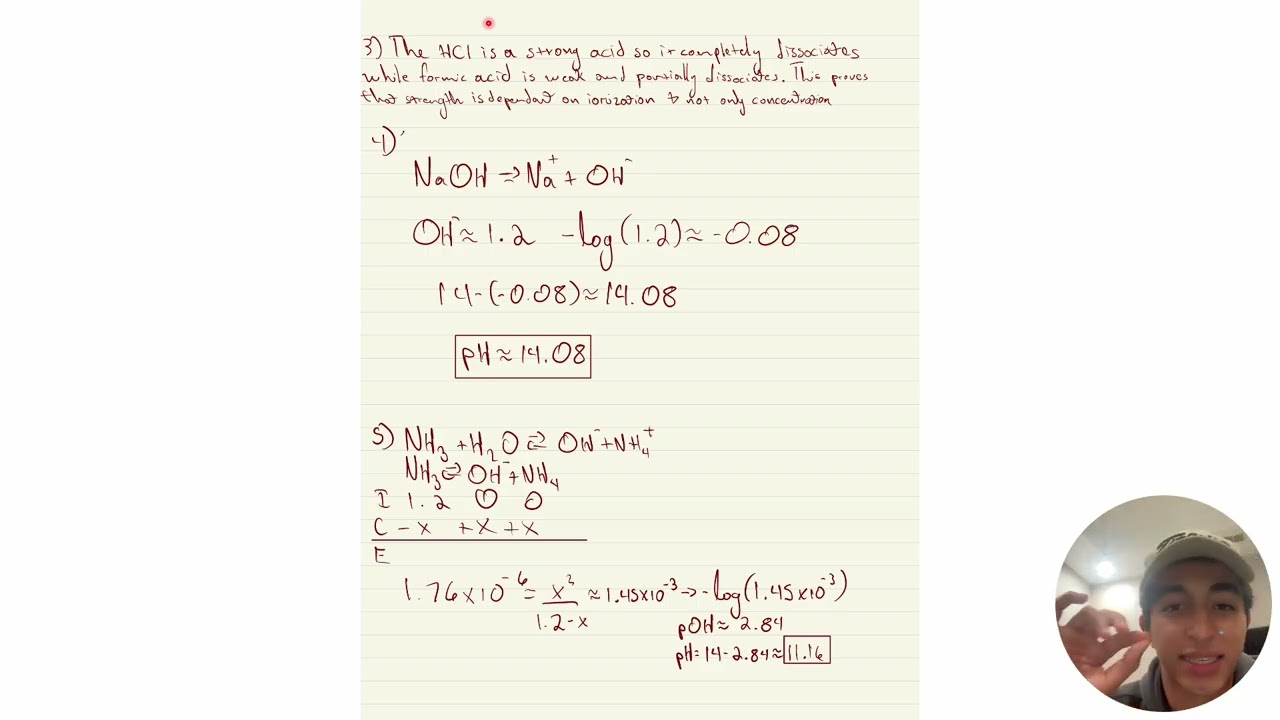 3) The HCl is a strong acid so it completely dissociates
while formic acid is weak and partially dissociates. This proves
that strength is dependant on ionization & not only concentration
4)
NaOH → Na⁺ + OH⁻
OH⁻ ≈ 1.2 -log(1.2) ≈ -0.08
14-(-0.08) ≈ 14.08
pH ≈ 14.08
5) NH₃ + H₂O ⇌ OH⁻ + NH₄⁺
NH₃ ⇌ OH⁻ + NH₄
I 1.2 0 0
C -x +x +x
E
1.76x10⁻⁶ = x²/1.2-x ≈ 1.45x10⁻³ → -log(1.45x10⁻³)
pOH ≈ 2.84
pH = 14-2.84 ≈ 11.16